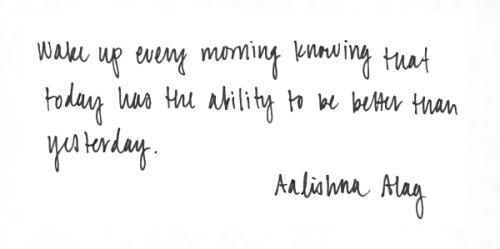 Wake up every morning knowing that
today has the ability to be better than
yesterday.
Aalishna Alag